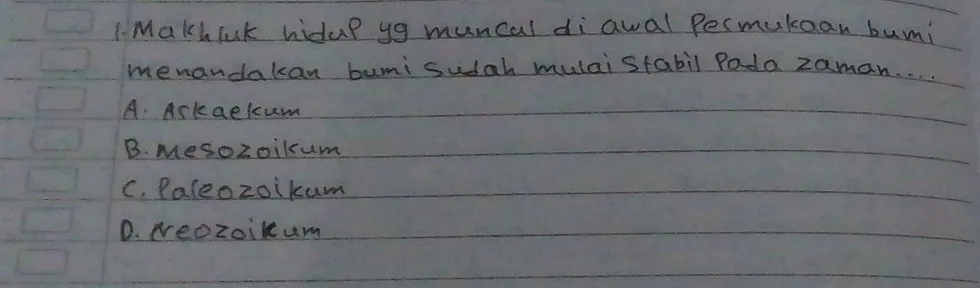 1. Makhluk hidup yg muncul di awal Permukaan bumi
menandakan bumi sudah mulai stabil Pada zaman....
A. Arkaekum
B. Mesozoikum
C. Paleozoikum
D. Neozoikum